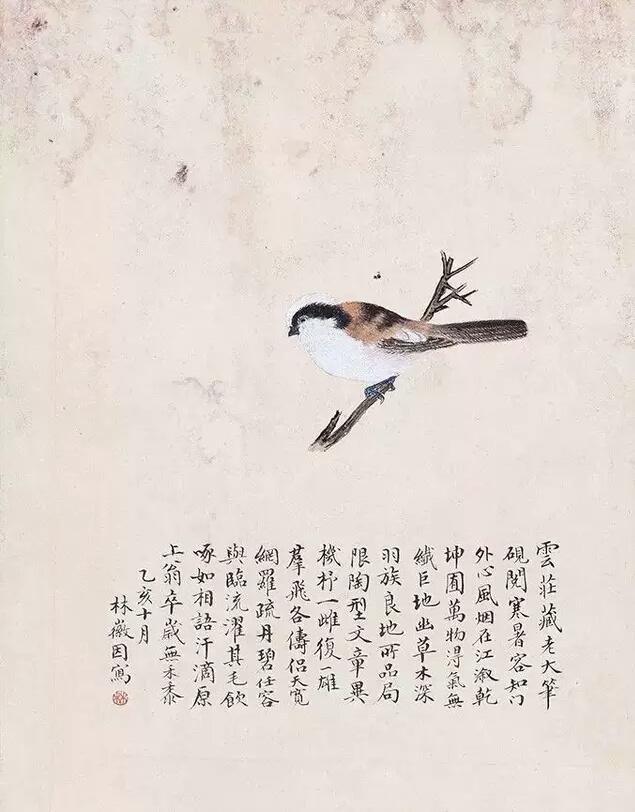 雲莊藏老大筆
硯閱寒暑容知门
外心風烟在江漵乾
坤囿萬物得氣無
纎巨地幽草木深
羽族良地所品局
限陶型文章異
機杼一雌復一雄
羣飛各儔侣天寬
網羅疏丹碧任容
與臨流濯其毛飲
啄如相語汗滴原
上翁卒歲無禾黍
乙亥十月
林徽因寫